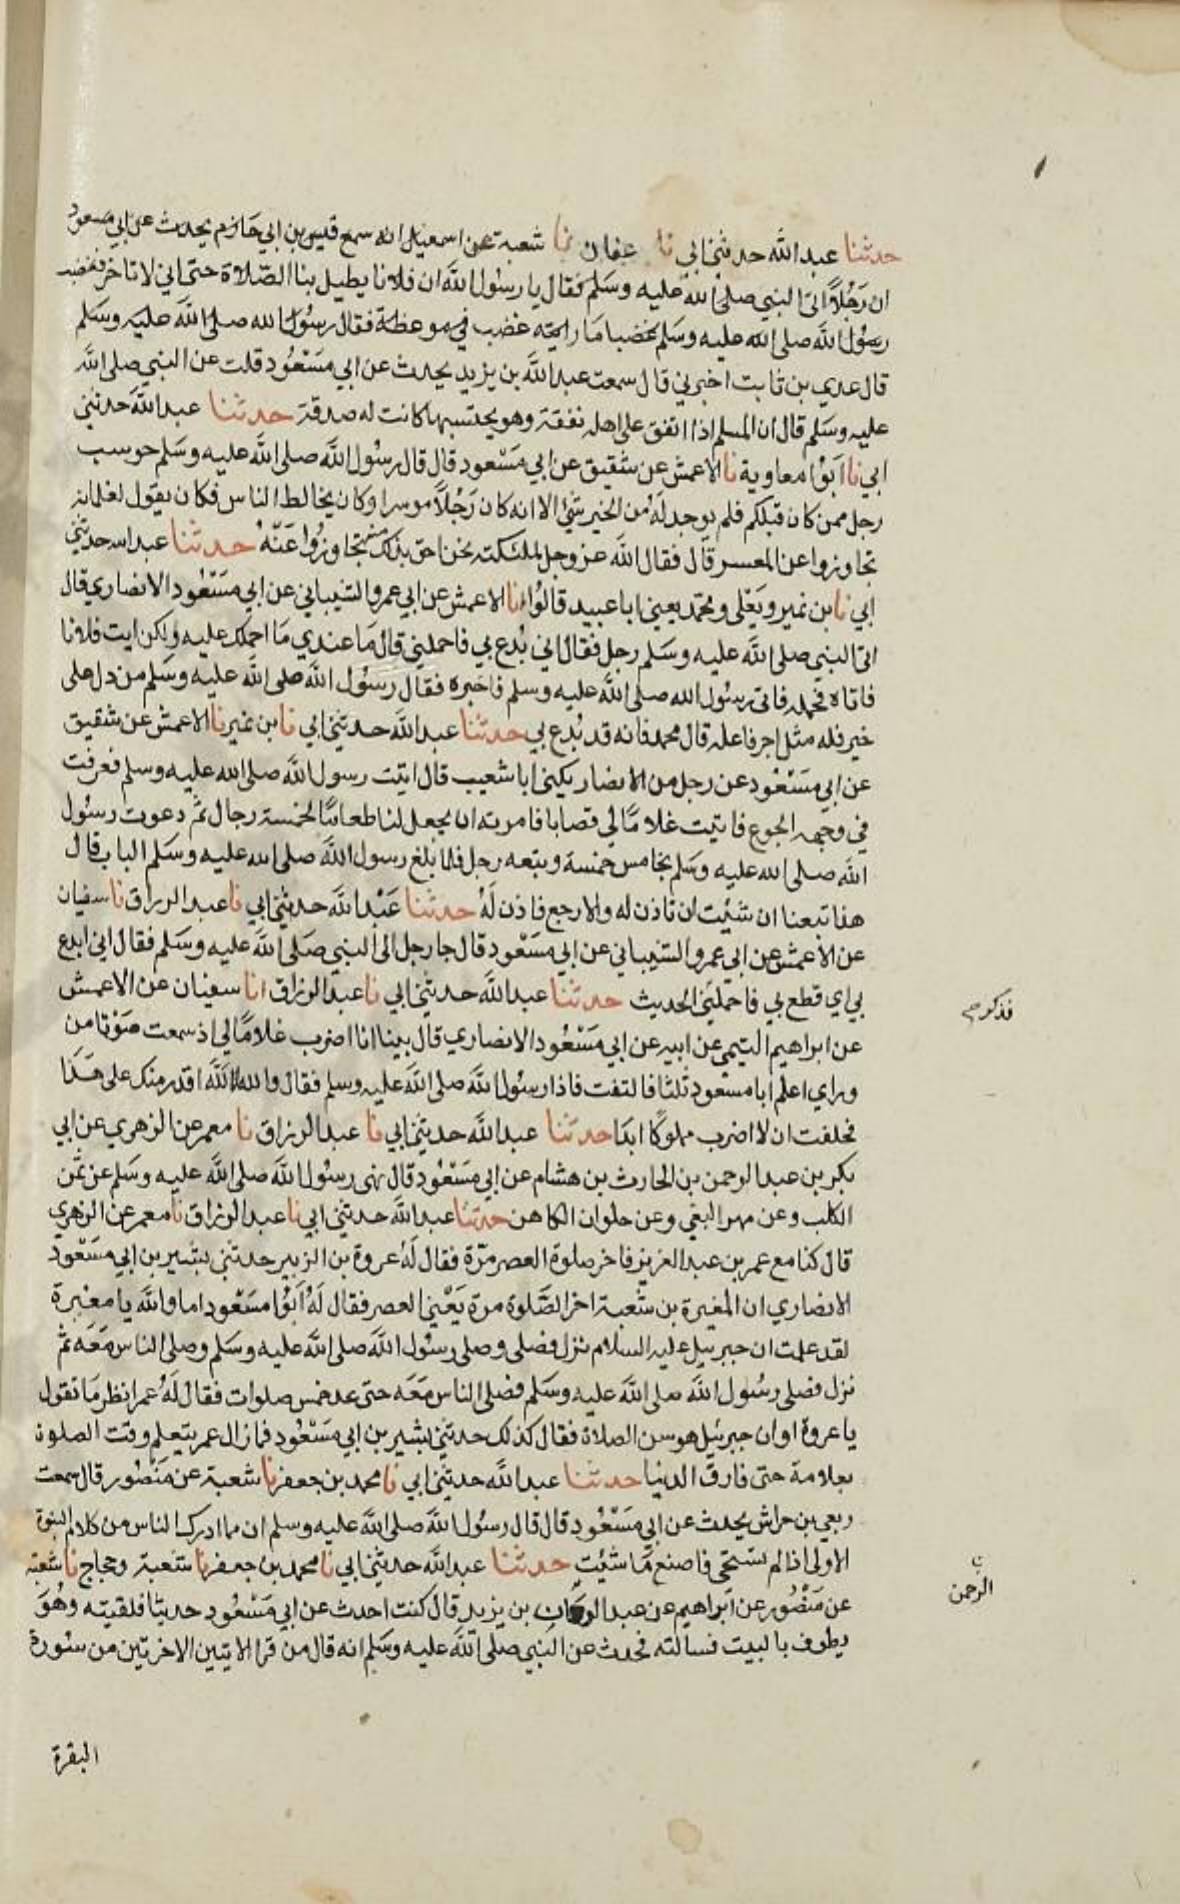 حدثنا عبد الله حدثني ابي نا عفان نا شعبة عن اسمعيل انه سمع قيس بن ابي حازم يحدث عن ابي مسعود
ان رَجُلاً اتى النبي صلى الله عليه وسَلم فقال يا رسُول اللهَ ان فلانا يطيل بنا الصّلاة حتى اني لاتاخر فغضب
رسُول اللهَ صلى الله عليه وسَلم غضبا مَا رايته غضب في موعظة فقال رسُول الله صلى اللهَ عليه وسَلم
قال عدي بن ثابت اخبرني قال سمعت عبد اللهَ بن يزيد يحدث عن ابي مسَعُود قلت عن النبي صلى اللهَ
عليه وسَلم قال ان المسلم اذا انفق على اهله نفقة وهو يحتسبها كانت له صدقة حدثنا عبد اللهَ حدثني
ابي نا ابَوُا معاوية نا الاعمش عن شقيق عن ابي مسْعود قال قال رسُول اللهَ صلى اللهَ عليه وسَلم حوسب
رجل ممن كان قبلكم فلم يوجد لهَ من الخير شئ الا انه كان رَجُلاً موسرا وكان يخالط الناس فكان يقول لغلمانه
تجاوزوا عن المعسر قال فقال اللهَ عز وجل لملئكته نحن احق بذلك منه تجاوزُوا عَنْهُ حدثنا عبد الله حدثني
ابي نا بن نمير ويَعْلى ومحمد يعني ابا عبيد قالوُا نا الاعمش عن ابي عمرو الشيباني عن ابي مسَعُود الانصاري قال
اتى النبي صلى اللهَ عليه وسَلم رجل فقال اني بُدع بي فاحملني قال مَا عندي مَا احملك عليه ولكن ايت فلانا
فاتاه فحمله فاتى رسُول الله صلى اللهَ عليه وسلم فاخبره فقال رسُول اللهَ صلى اللهَ عليه وسَلم من دل على
خير فله مثل اجر فاعله قال محمد فانه قد بُدع بي حدثنا عبد اللهَ حدثني ابي نا بن نمير نا الاعمش عن شقيق
عن ابي مسَعُود عن رجل من الانصار يكنى ابا شعيب قال اتيت رسول اللهَ صلى الله عليه وسلم فعرفت
في وجهه الجوع فاتيت غلامًا لي قصابا فامرته ان يجعل لنا طعامًا لخمسة رجال ثم دعوت رسُول
اللهَ صلى الله عليه وسَلم بخامس خمسة وتبعه رجل فلما بلغ رسول اللهَ صلى الله عليه وسَلم الباب قال
هذا تبعنا ان شئت ان تاذن له والا رجع فاذن لهُ حدثنا عَبْد اللهَ حدثني ابي نا عبد الرزاق نا سفيان
عن الاعمش عن ابي عمرو الشيباني عن ابي مسَعُود قال جا رجل الى النبي صَلى اللهَ عليه وسَلم فقال اني ابدع
بي اي قطع بي فاحملني الحديث حدثنا عبد اللهَ حدثني ابي نا عبد الرزاق انا سفيان عن الاعمش
فذكره صح
عن ابراهيم التيمي عن ابيه عن ابي مسْعُود الانصاري قال بينا انا اضرب غلامًا لي اذ سمعت صَوْتا من
وراي اعلم ابا مسعود ثلثا فالتفت فاذا رسُول اللهَ صلى اللهَ عليه وسلم فقال والله لَلهَ اقدر منك على هَذا
فحلفت ان لا اضرب مملوكًا ابدًا حدثنا عبد اللهَ حدثني ابي نا عبد الرزاق نا معمر عن الزهري عن ابي
بكر بن عبد الرحمن بن الحارث بن هشام عن ابي مسَعُود قال نهى رسُول اللهَ صلى اللهَ عليه وسَلم عن ثمن
الكلب وعن مهر البغي وعن حلوان الكاهن حدثنا عبد اللهَ حدثني ابي نا عبد الرزاق نا معمر عن الزهري
قال كنا مع عمر بن عبد العزيز فاخر صلوة العصر مرّة فقال لهُ عروة بن الزبير حدثني بشير بن ابي مسَعْود
الانصاري ان المغيرة بن شعبة اخر الصَّلوة مرة يَعْني العصر فقال لهُ ابَوُا مسَعُود اما والله يا مغيرة
لقد علمت ان جبرئيل عليه السلام نزل فصلى وصلى رسُول اللهَ صلى اللهَ عليه وسَلم وصلى الناس مَعَه ثم
نزل فصلى رسُول اللهَ صلى اللهَ عليه وسَلم فصلى الناس مَعَه حتى عد خمس صلوات فقال لهُ عمر انظر مَا تقول
يا عروة او ان جبرئيل هو سن الصلاة فقال كذلك حدثني بشير بن ابي مسَعْود فما زال عمر يتعلم وقت الصلوة
بعلامة حتى فارق الدنيا حدثنا عبد اللهَ حدثني ابي نا محمد بن جعفر نا شعبة عن منصُور قال سمعت
ربعي بن حراش يحدث عن ابي مسَعُود قال قال رسُول اللهَ صلى اللهَ عليه وسلم ان مما ادرك الناس من كلام النبوة
الاولى اذا لم تستحي فاصنع مَا شئت حدثنا عبد اللهَ حدثني ابي نا محمد بن جعفر نا شعبة وحجاج نا شعبة
عن منصُور عن ابراهيم عن عبد بن يزيد قال كنت احدث عن ابي مسَعُود حديثا فلقيته وهُوَ
الرحمن
يطوف بالبيت فسالته فحدث عن النبي صلى اللهَ عليه وسَلم انه قال من قرا الايتين الاخرتين من سُورة
البقرة